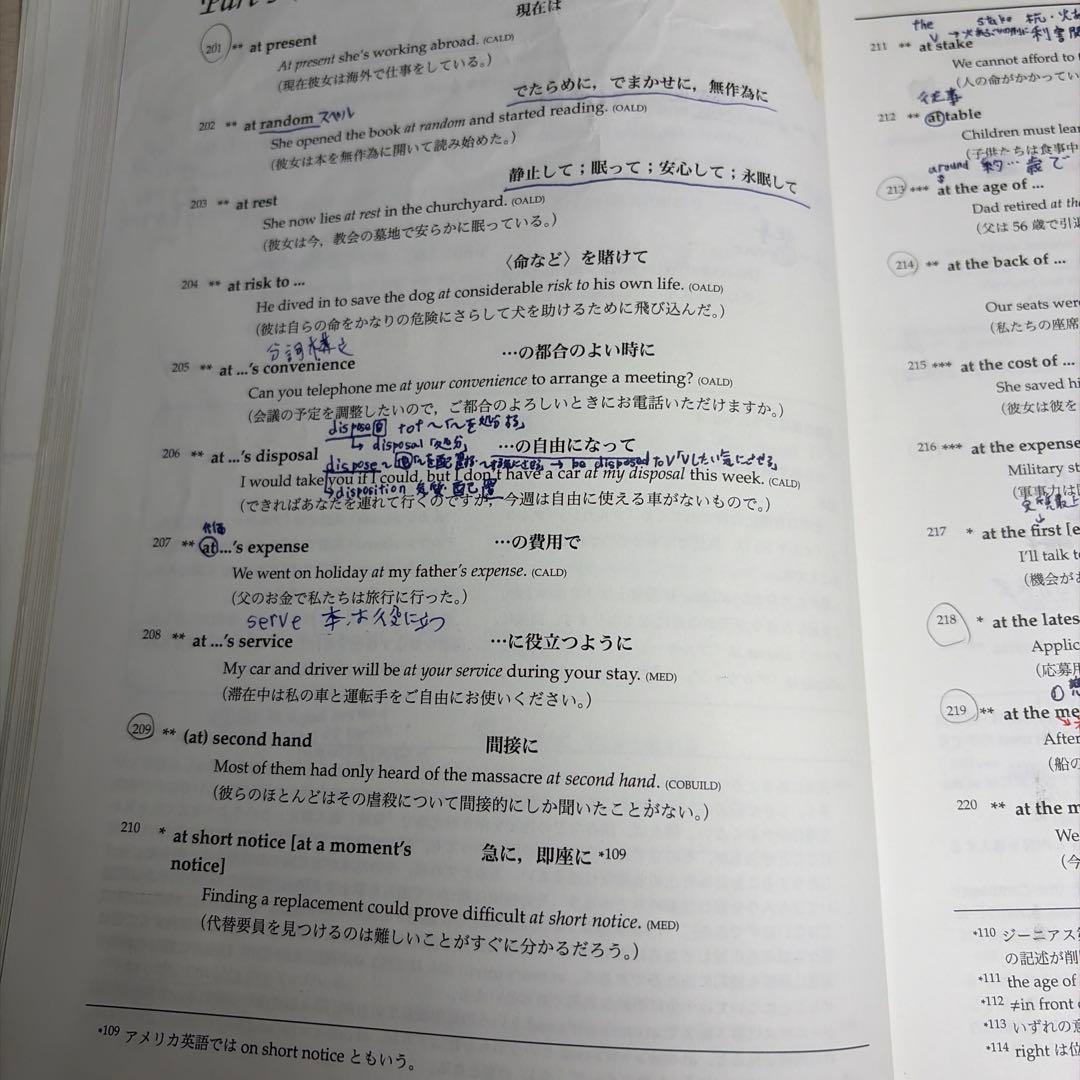 現在は
201 ** at present
At present she's working abroad. (CALD)
(現在彼女は海外で仕事をしている。)
でたらめに，でまかせに，無作為に
202 ** at random スペル
She opened the book at random and started reading. (OALD)
(彼女は本を無作為に開いて読み始めた。)
静止して；眠って；安心して；永眠して
203 ** at rest
She now lies at rest in the churchyard. (OALD)
(彼女は今，教会の墓地で安らかに眠っている。)
〈命など〉を賭けて
204 ** at risk to ...
He dived in to save the dog at considerable risk to his own life. (OALD)
(彼は自らの命をかなりの危険にさらして犬を助けるために飛び込んだ。)
分詞構文
205 ** at ...'s convenience …の都合のよい時に
Can you telephone me at your convenience to arrange a meeting? (OALD)
(会議の予定を調整したいので，ご都合のよろしいときにお電話いただけますか。)
dispose 自 tof ~「~を処分する」
→ disposal「処分」
206 ** at ...'s disposal …の自由になって
dispose ~ 他 → be disposed to V「Vしたい気にさせる」
I would take you if I could, but I don't have a car at my disposal this week. (CALD)
disposition 気質・配置
(できればあなたを連れて行くのですが，今週は自由に使える車がないもので。)
代価
207 ** at ...'s expense …の費用で
We went on holiday at my father's expense. (CALD)
(父のお金で私たちは旅行に行った。)
serve 役に立つ
208 ** at ...'s service …に役立つように
My car and driver will be at your service during your stay. (MED)
(滞在中は私の車と運転手をご自由にお使いください。)
209 ** (at) second hand 間接に
Most of them had only heard of the massacre at second hand. (COBUILD)
(彼らのほとんどはその虐殺について間接的にしか聞いたことがない。)
210 * at short notice [at a moment's notice] 急に，即座に *109
Finding a replacement could prove difficult at short notice. (MED)
(代替要員を見つけるのは難しいことがすぐに分かるだろう。)
*109 アメリカ英語では on short notice ともいう。
the stake 杭・火
211 ** at stake
We cannot afford to
(人の命がかかってい
従事
212 ** at table
Children must lear
(子供たちは食事中
around 約…歳で
213 *** at the age of ...
Dad retired at the
(父は 56 歳で引退
214 ** at the back of ...
Our seats were
(私たちの座席
215 *** at the cost of ...
She saved hi
(彼女は彼を
216 *** at the expense
Military st
(軍事力は
217 * at the first [e
I'll talk t
(機会がお
218 * at the lates
Applic
(応募用
219 ** at the me
After
(船の
220 ** at the m
We
(今
*110 ジーニアス
の記述が削
*111 the age of
*112 ≠in front
*113 いずれの意
*114 right は位